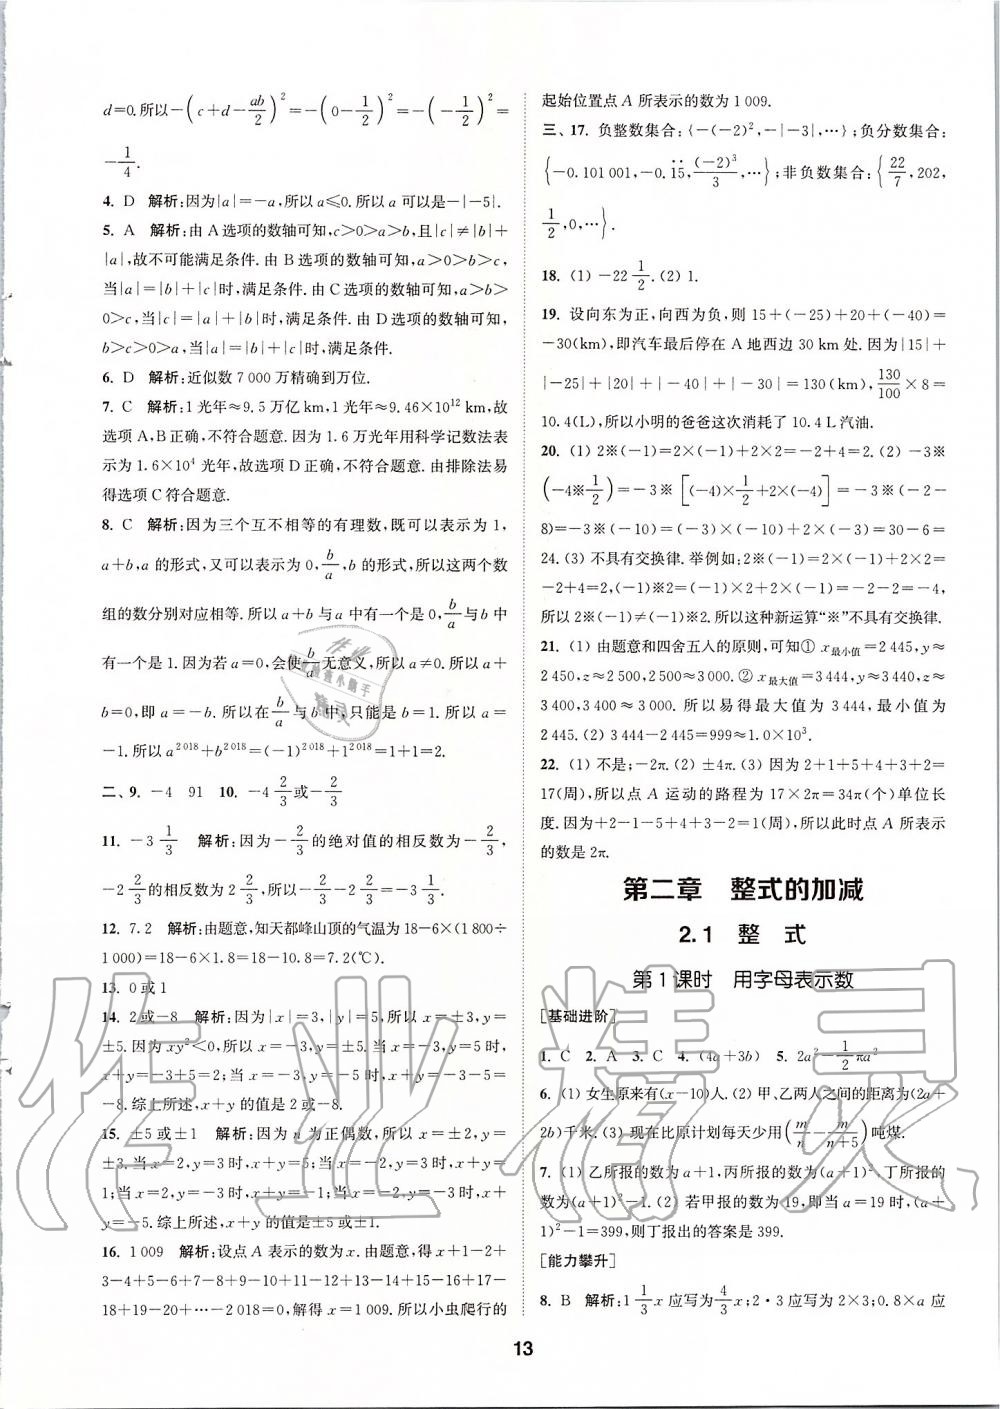 d=0.所以-(c+d-ab/2)²=-(0-1/2)²=-(-1/2)²=
-1/4.
4. D 解析:因为|a|=-a,所以a≤0.所以a可以是-|-5|.
5. A 解析:由A选项的数轴可知,c>0>a>b,且|c|≠|b|+
|a|,故不可能满足条件.由B选项的数轴可知,a>0>b>c,
当|a|=|b|+|c|时,满足条件.由C选项的数轴可知,a>b>
0>c,当|c|=|a|+|b|时,满足条件.由D选项的数轴可知,
b>c>0>a,当|a|=|b|+|c|时,满足条件.
6. D 解析:近似数7 000万精确到万位.
7. C 解析:1光年≈9.5万亿km,1光年≈9.46×10¹² km,故
选项A,B正确,不符合题意.因为1.6万光年用科学记数法表
示为1.6×10⁴光年,故选项D正确,不符合题意.由排除法易
得选项C符合题意.
8. C 解析:因为三个互不相等的有理数,既可以表示为1,
a+b,a的形式,又可以表示为0,b/a,b的形式,所以这两个数
组的数分别对应相等.所以a+b与a中有一个是0,b/a与b中
有一个是1.因为若a=0,会使b/a无意义,所以a≠0.所以a+
b=0,即a=-b.所以在b/a与b中,只能是b=1.所以a=
-1.所以a²⁰¹⁸+b²⁰¹⁸=(-1)²⁰¹⁸+1²⁰¹⁸=1+1=2.
二、9. -4 91 10. -4 2/3或-2/3
11. -3 1/3 解析:因为-2/3的绝对值的相反数为-2/3,
-2 2/3的相反数为2 2/3,所以-2/3-2 2/3=-3 1/3.
12. 7.2 解析:由题意,知天都峰山顶的气温为18-6×(1 800÷
1 000)=18-6×1.8=18-10.8=7.2(℃).
13. 0或1
14. 2或-8 解析:因为|x|=3,|y|=5,所以x=±3,y=
±5.因为xy²<0,所以x=-3,y=±5.当x=-3,y=5时,
x+y=-3+5=2;当x=-3,y=-5时,x+y=-3-5=
-8.综上所述,x+y的值是2或-8.
15. ±5或±1 解析:因为n为正偶数,所以x=±2,y=
±3.当x=2,y=3时,x+y=5;当x=-2,y=3时,x+y=
1;当x=2,y=-3时,x+y=-1;当x=-2,y=-3时,x+
y=-5.综上所述,x+y的值是±5或±1.
16. 1 009 解析:设点A表示的数为x.由题意,得x+1-2+
3-4+5-6+7-8+9-10+11-12+13-14+15-16+17-
18+19-20+…-2 018=0,解得x=1 009.所以小虫爬行的
起始位置点A所表示的数为1 009.
三、17. 负整数集合:{-(-2)²,-|-3|,…};负分数集合:
{-0.101 001,-0.1̇5̇,(-2)³/3,…};非负数集合:{22/7,202,
1/2,0,…}.
18. (1) -22 1/2.(2) 1.
19. 设向东为正,向西为负,则15+(-25)+20+(-40)=
-30(km),即汽车最后停在A地西边30 km处.因为|15|+
|-25|+|20|+|-40|+|-30|=130(km),130/100×8=
10.4(L),所以小明的爸爸这次消耗了10.4 L汽油.
20. (1) 2※(-1)=2×(-1)+2×2=-2+4=2.(2) -3※
(-4※1/2)=-3※[(-4)×1/2+2×(-4)]=-3※(-2-
8)=-3※(-10)=(-3)×(-10)+2×(-3)=30-6=
24.(3) 不具有交换律.举例如:2※(-1)=2×(-1)+2×2=
-2+4=2,(-1)※2=(-1)×2+2×(-1)=-2-2=-4,
所以2※(-1)≠(-1)※2.所以这种新运算“※”不具有交换律.
21. (1) 由题意和四舍五入的原则,可知① x最小值=2 445,y≈
2 450,z≈2 500,2 500≈3 000.② x最大值=3 444,y≈3 440,z≈
3 400,3 400≈3 000.所以易得最大值为3 444,最小值为
2 445.(2) 3 444-2 445=999≈1.0×10³.
22. (1) 不是;-2π.(2) ±4π.(3) 因为2+1+5+4+3+2=
17(周),所以点A运动的路程为17×2π=34π(个)单位长
度.因为+2-1-5+4+3-2=1(周),所以此时点A所表示
的数是2π.
第二章 整式的加减
2.1 整 式
第1课时 用字母表示数
[基础进阶]
1. C 2. A 3. C 4. (4a+3b) 5. 2a²-1/2πa²
6. (1) 女生原来有(x-10)人.(2) 甲、乙两人之间的距离为(2a+
2b)千米.(3) 现在比原计划每天少用(m/n-m/(n+5))吨煤.
7. (1) 乙所报的数为a+1,丙所报的数为(a+1)²,丁所报的
数为(a+1)²-1.(2) 若甲报的数为19,即当a=19时,(a+
1)²-1=399,则丁报出的答案是399.
[能力攀升]
8. B 解析:1 1/3x应写为4/3x;2·3应写为2×3;0.8×a应
13
作业精灵